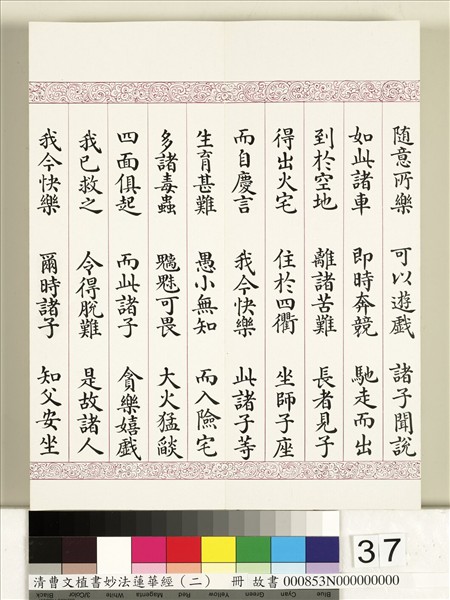 隨意所樂 可以遊戲 諸子聞說
如此諸車 即時奔競 馳走而出
到於空地 離諸苦難 長者見子
得出火宅 住於四衢 坐師子座
而自慶言 我今快樂 此諸子等
生育甚難 愚小無知 而入險宅
多諸毒蟲 魑魅可畏 大火猛燄
四面俱起 而此諸子 貪樂嬉戲
我已救之 令得脫難 是故諸人
我今快樂 爾時諸子 知父安坐
37
清曹文植書妙法蓮華經（二） 冊 故書 000853N000000000
Black 3/Color White Magenta Red Yellow Green Cyan Blue